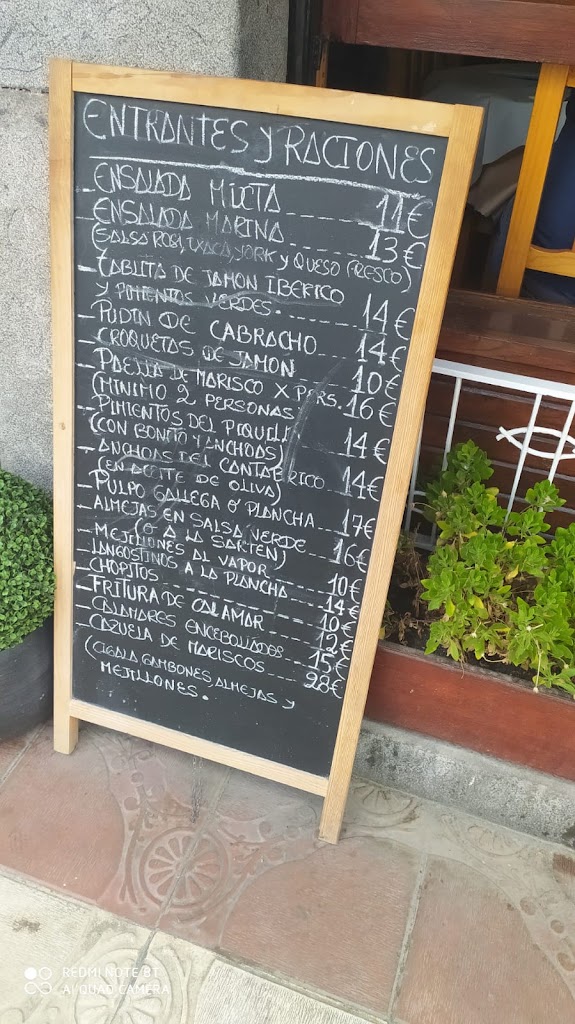 ENTRANTES Y RACIONES
ENSALADA MIXTA 11€
ENSALADA MARINA 13€
(SALSA ROSA, TXACA, YORK Y QUESO FRESCO)
TABLITA DE JAMON IBERICO
Y PIMIENTOS VERDES. 14€
PUDIN DE CABRACHO 14€
CROQUETAS DE JAMON 10€
PAELLA DE MARISCO X PERS. 16€
(MINIMO 2 PERSONAS
PIMIENTOS DEL PIQUILL
(CON BONITO Y ANCHOAS) 14€
ANCHOAS DEL CANTABRICO 14€
(EN ACEITE DE OLIVA)
PULPO GALLEGA O' PLANCHA 17€
ALMEJAS EN SALSA VERDE 16€
(O A LA SARTEN)
MEJILLONES AL VAPOR 10€
LANGOSTINOS A LA PLANCHA 14€
CHOPITOS 10€
FRITURA DE CALAMAR 12€
CALAMARES ENCEBOLLADOS 15€
CAZUELA DE MARISCOS 28€
(CIGALA GAMBONES, ALMEJAS Y
MEJILLONES.
REDMI NOTE 8T
AI QUAD CAMERA